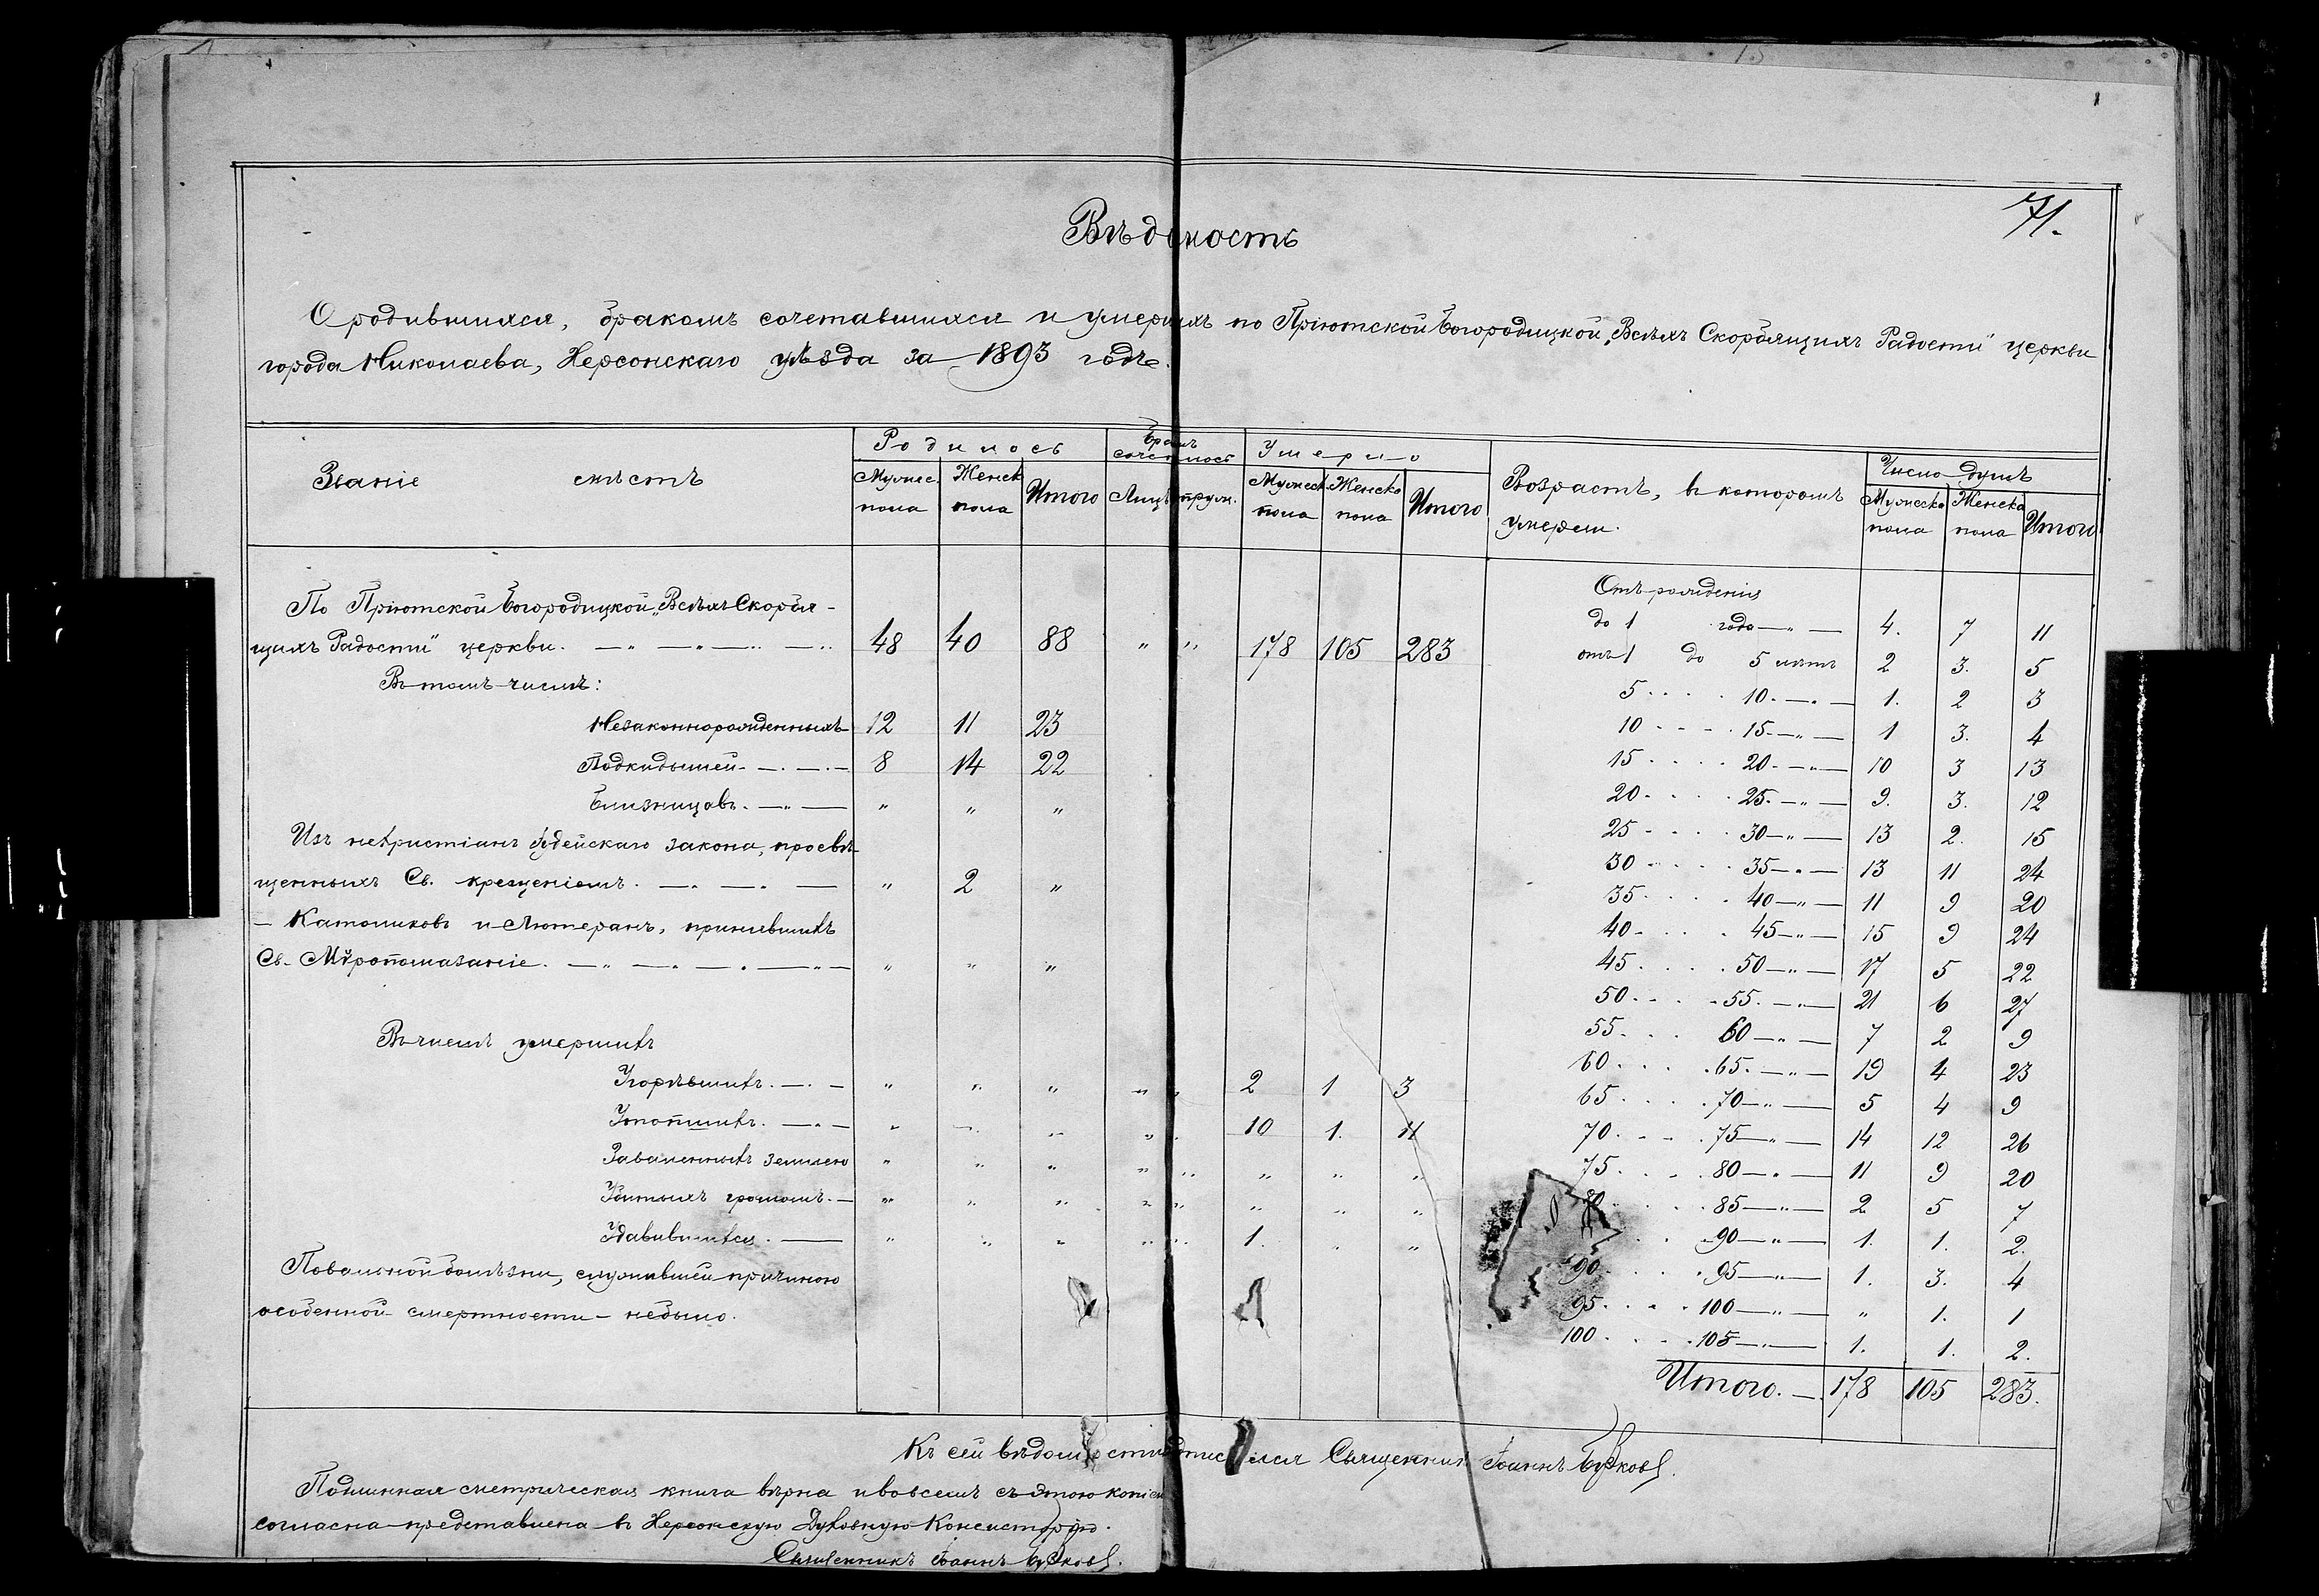 71.
Вѣдомость
О родившихся, бракомъ сочетавшихся и умершихъ по Пріютской Богородицкой „Всѣхъ Скорбящихъ Радости" церкви
города Николаева, Херсонскаго уѣзда за 1893 годъ.
Званіе мѣстъ
Родилось
Мужес. пола Женск пола Итого
Бракъ сочеталось
Лицъ Супруж.
Умерло
Мужеск пола Женска пола Итого
Возрастъ, въ которомъ умерли.
Число душъ
Мужеска пола Женска пола Итого
По Пріютской Богородицкой „Всѣхъ Скорбя-
щихъ Радости" церкви. — „ — „ — „ — „ 48 40 88 „ „ 178 105 283
Въ томъ числѣ:
Незаконнорожденныхъ 12 11 23
Подкидышей — . — . — 8 14 22
Близницовъ. — „ — „ „ „
Изъ нехристіанъ Іудейскаго закона, просвѣ-
щенныхъ Св. крещеніемъ. — . — . — „ 2 „
— Католиковъ и Лютеранъ, принявшихъ
Св. Мѵропомазаніе. — „ — „ — . — „ — „ „ „
Въ числѣ умершихъ
Угорѣвшихъ. — . — „ „ „ „ „ 2 1 3
Утопшихъ. — . — „ „ „ „ „ 10 1. 11
Заваленныхъ землею „ „ „ „ „ „ „ „
Убитыхъ громомъ. — „ „ „ „ „ „ „ „
Удавившихся. — „ „ „ „ „ 1. „ „
Повальной болѣзни, служившей причиною
особенной смертности — небыло.
Отъ рожденія
до 1 года — „ — 4. 7 11
отъ 1 до 5 лѣтъ 2 3. 5
5 . . . . 10. — „ — 1. 2 3
10 . . . . 15. — „ — 1 3. 4
15 . . . . 20. — „ — 10 3 13
20 . . . . 25. — „ — 9. 3. 12
25 . . . . 30 — „ — 13 2. 15
30 . . . . 35 — „ — 13 11 24
35 . . . . 40 — „ — 11 9 20
40 . . . . 45 — „ — 15 9 24
45 . . . . 50 — „ — 17 5 22
50 . . . . 55. — „ — 21 6 27
55 . . . 60 — „ — 7 2 9
60 . . . . 65. — „ — 19 4 23
65 . . . . 70 — „ — 5 4 9
70 . . . . 75 — „ — 14 12 26
75 . . . . 80 — „ — 11 9 20
80 . . . . 85 — „ — 2 5 7
. . . 90 — „ — 1. 1. 2.
90 . . . . 95 — „ — 1. 3. 4
95 . . . . 100 — „ — „ 1. 1
100 . . . . 105 — „ — 1. 1. 2.
Итого. — 178 105 283.
Къ сей вѣдомости подписался Священникъ Іоаннъ
Подлинная метрическая книга вѣрна и во всемъ съ этою копіею
согласна представлена въ Херсонскую Духовную Консисторію.
Священникъ Іоаннъ